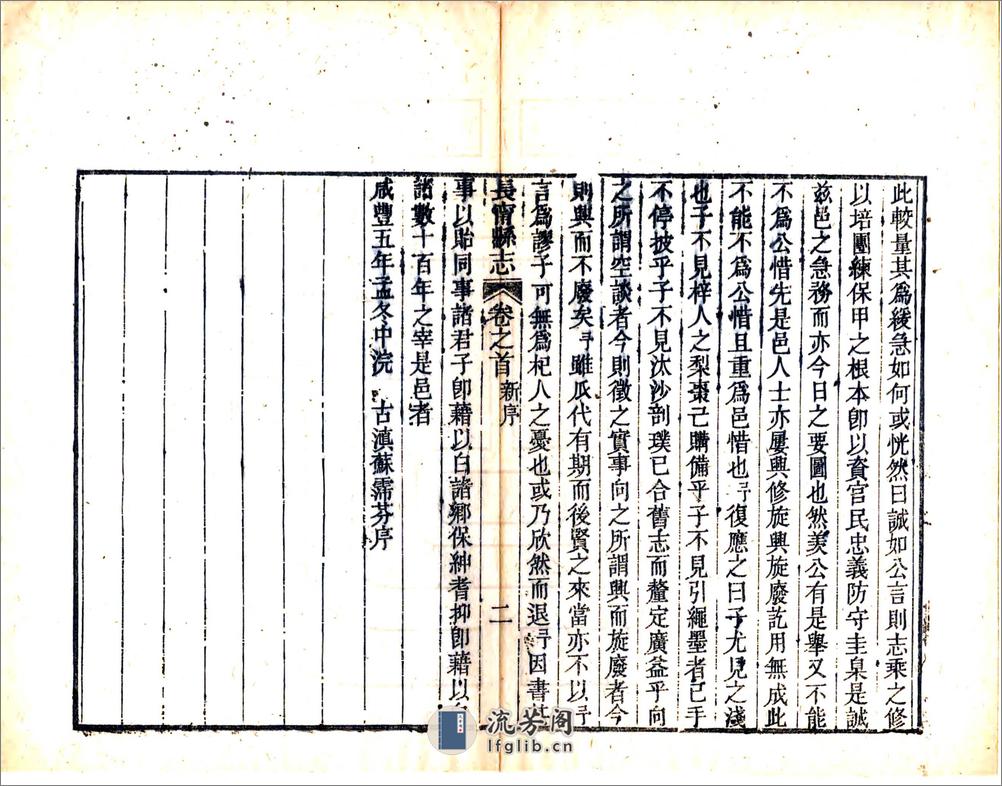 此較量其爲緩急如何或恍然曰誠如公言則志乘之修
以培團練保甲之根本卽以資官民忠義防守圭臬是誠
兹邑之急務而亦今日之要圖也然美公有是舉又不能
不爲公惜先是邑人士亦屢興修旋興旋廢訖用無成此
不能不爲公惜且重爲邑惜也予復應之曰子尤見之淺
也子不見梓人之梨棗已購備乎子不見引繩墨者已手
不停披乎子不見汰沙剖璞已合舊志而釐定廣益乎向
之所謂空談者今則徵之實事向之所謂興而旋廢者今
則興而不廢矣予雖瓜代有期而後賢之來當亦不以予
言爲謬子可無爲杞人之憂也或乃欣然而退予因書其
長甯縣志 卷之首 新序 二
事以貽同事諸君子卽藉以白諸鄉保紳耆抑卽藉以
諸數十百年之宰是邑者
咸豐五年孟冬中浣 古滇蘇霈芬序
流芳阁
lfglib.cn